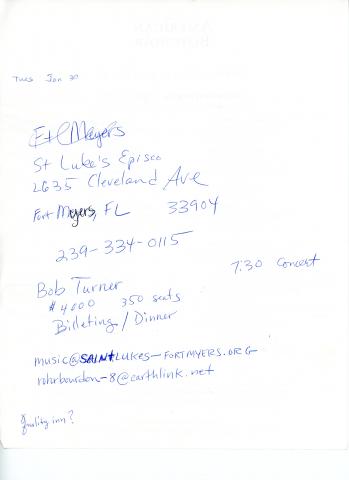 Tues Jan 30
Ft Meyers
St Luke's Episco
2635 Cleveland Ave
Fort Myers, FL 33904
239-334-0115
7:30 Concert
Bob Turner
$4000 350 seats
Billeting / Dinner
music@SAINTLUKES-FORTMYERS.ORG
rohrbourdon-8@earthlink.net
Quality inn?